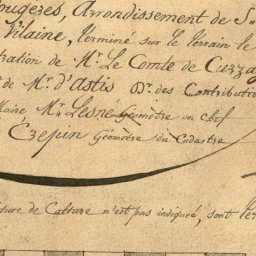 ougeres, Arrondissement de S
Vilaine, terminé sur le terrain le
tration de Mr. Le Comte de Cuzza
de Mr. d'Astis Dr. des Contributio
Maire Mr. Lesné Géomètre en chef
Ezepin Géomètre du Cadastre
ture de Culture n'est pas indiqué, sont